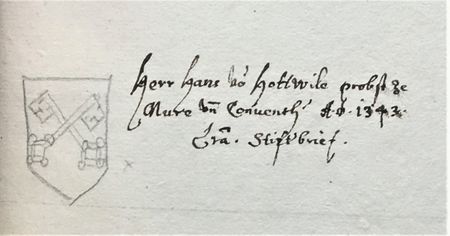 Herr Hans vō Hottwile probst ze
Mure vn̄ Conventh Aō. 1343.
Stiftbrief.